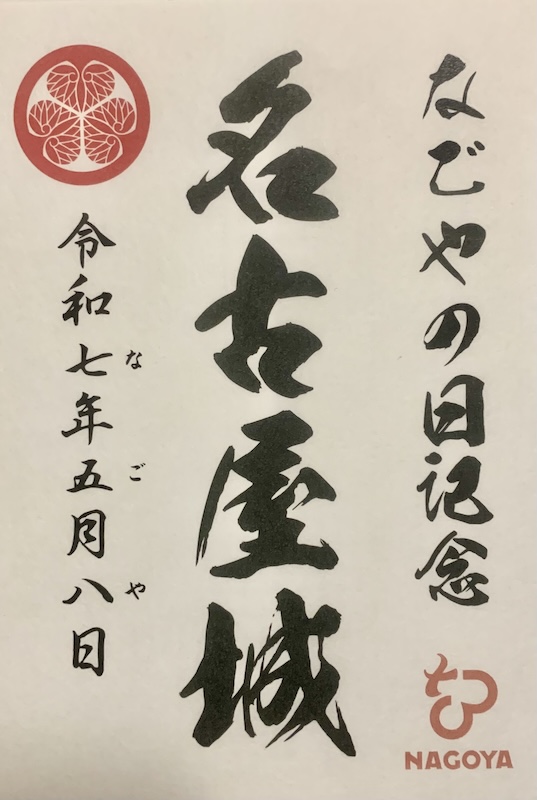 なごやの日記念
名古屋城
令和七年五月八日
な ご や
NAGOYA